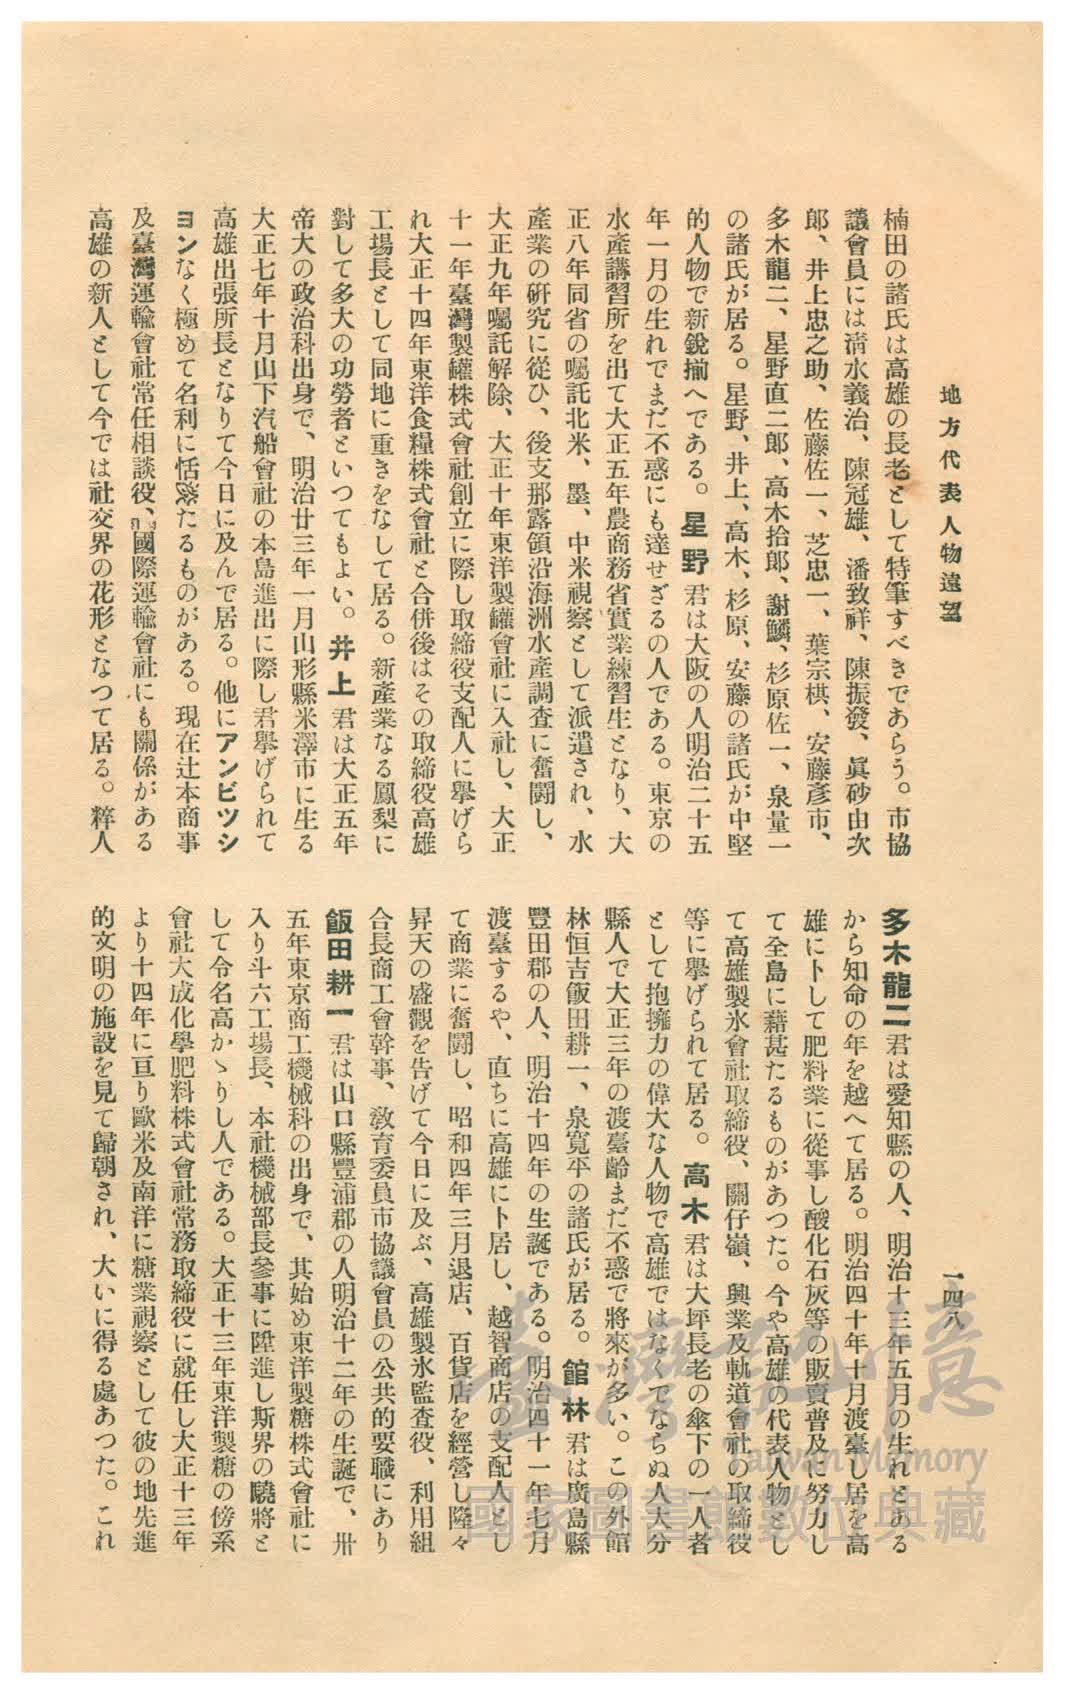 地方代表人物遠望
一四八
楠田の諸氏は高雄の長老として特筆すべきであらう。市協
議會員には淸水義治、陳冠雄、潘致祥、陳振發、眞砂由次
郎、井上忠之助、佐藤佐一、芝忠一、葉宗棋、安藤彥市、
多木龍二、星野直二郎、高木拾郎、謝鱗、杉原佐一、泉量一
の諸氏が居る。星野、井上、高木、杉原、安藤の諸氏が中堅
的人物で新銳揃へである。星野君は大阪の人明治二十五
年一月の生れでまだ不惑にも達せざるの人である。東京の
水產講習所を出て大正五年農商務省實業練習生となり、大
正八年同省の囑託北米、墨、中米視察として派遣され、水
產業の硏究に從ひ、後支那露領沿海洲水產調査に奮鬪し、
大正九年囑託解除、大正十年東洋製罐會社に入社し、大正
十一年臺灣製罐株式會社創立に際し取締役支配人に擧げら
れ大正十四年東洋食糧株式會社と合併後はその取締役高雄
工場長として同地に重きをなして居る。新產業なる鳳梨に
對して多大の功勞者といつてもよい。井上君は大正五年
帝大の政治科出身で、明治廿三年一月山形縣米澤市に生る
大正七年十月山下汽船會社の本島進出に際し君擧げられて
高雄出張所長となりて今日に及んで居る。他にアンビツシ
ヨンなく極めて名利に恬淡たるものがある。現在辻本商事
及臺灣運輸會社常任相談役、國際運輸會社にも關係がある
高雄の新人として今では社交界の花形となつて居る。粹人
多木龍二君は愛知縣の人、明治十三年五月の生れとある
から知命の年を越へて居る。明治四十年十月渡臺し居を高
雄に卜して肥料業に從事し酸化石灰等の販賣普及に努力し
て全島に藉甚たるものがあつた。今や高雄の代表人物とし
て高雄製氷會社取締役、關仔嶺、興業及軌道會社の取締役
等に擧げられて居る。高木君は大坪長老の傘下の一人者
として抱擁力の偉大な人物で高雄ではなくてならぬ人大分
縣人で大正三年の渡臺齡まだ不惑で將來が多い。この外館
林恒吉飯田耕一、泉寬平の諸氏が居る。館林君は廣島縣
豐田郡の人、明治十四年の生誕である。明治四十一年七月
渡臺するや、直ちに高雄に卜居し、越智商店の支配人とし
て商業に奮鬪し、昭和四年三月退店、百貨店を經營し隆々
昇天の盛觀を告げて今日に及ぶ、高雄製氷監査役、利用組
合長商工會幹事、敎育委員市協議會員の公共的要職にあり
飯田耕一君は山口縣豐浦郡の人明治十二年の生誕で、卅
五年東京商工機械科の出身で、其始め東洋製糖株式會社に
入り斗六工場長、本社機械部長參事に陞進し斯界の驍將と
して令名高かゝりし人である。大正十三年東洋製糖の傍系
會社大成化學肥料株式會社常務取締役に就任し大正十三年
より十四年に亘り歐米及南洋に糖業視察として彼の地先進
的文明の施設を見て歸朝され、大いに得る處あつた。これ
臺灣記憶
Taiwan Memory
國家圖書館數位典藏